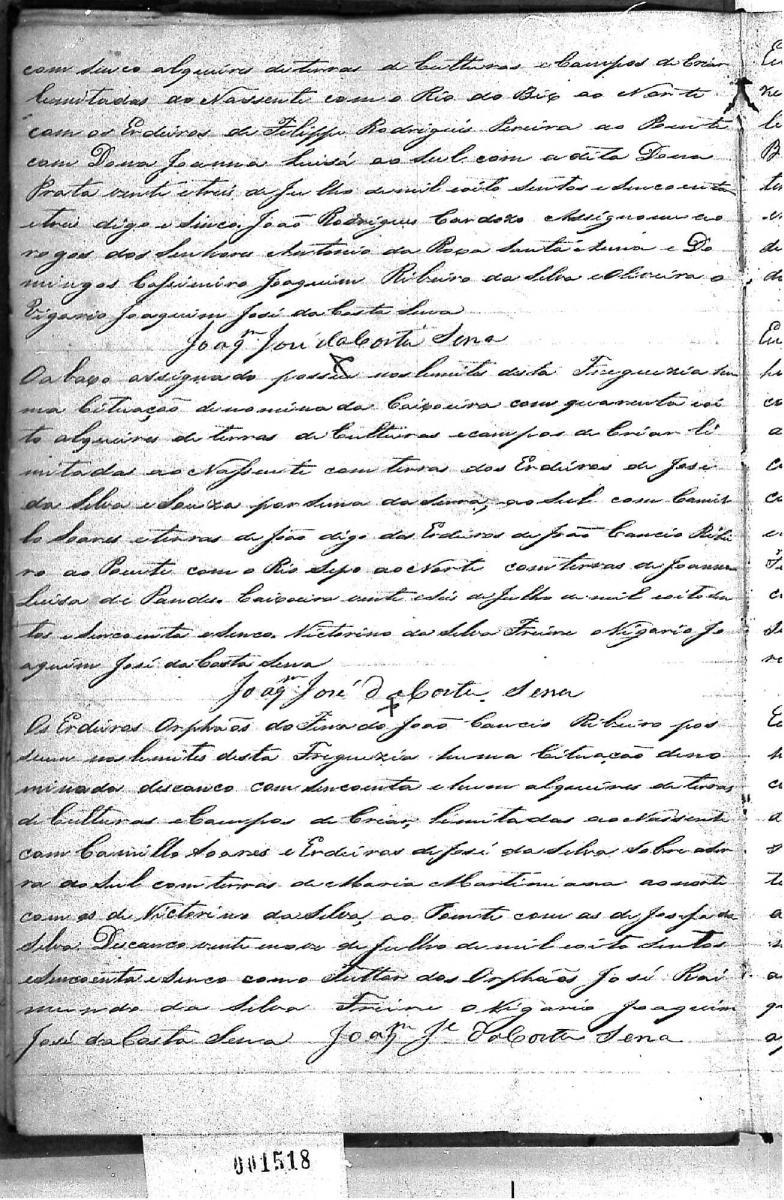 com sinco alqueires de terras de Culturas e Campos de Criar
limitadas ao Nassente com o Rio do ao Norte
com os Erdeiros de Filippe Rodrigues Pereira ao Poente
com Dona Joanna Luisa ao Sul com a dita Dona
Prata vinte e treis de Julho de mil oito sentos e sincoenta
e treis digo e sinco. João Rodrigues Cardozo Assigno em a
rogos dos Senhores Antonio da Roxa Santa Anna e Do
mingos Casimiro Joaquim Ribeiro da Silva e Oliveira o
Vigario Joaquim José da Costa Sena
Joaqm José da Costa Sena
O abaxo assignado possue nos limites desta Freguezia hu
ma Cituação denominada Caixoeira com quarenta e oi
to alqueires de terras de Culturas e campos de Criar li
mitadas ao Nassente com terras dos Erdeiros de José
da Silva e Souza por sima da serra, ao Sul com Camil
lo Soares e terras de João digo dos Erdeiros de João Cancio Ribei
ro ao Poente com o Rio Sipo ao Norte com terras de Joanna
Luisa de Caixoeira vinte e seis de Julho de mil oito sen
tos e sincoenta e sinco. Victorino da Silva Freire o Vigario Jo
aquim José da Costa Sena
Joaqm José da Costa Sena
Os Erdeiros Orphãos do Finado João Cancio Ribeiro pos
suem nos limites desta Freguezia huma Cituação deno
minada descanco com sincoenta e hum alqueires de terras
de Culturas e Campos de Criar, limitadas ao Nassente
com Camillo Soares e Erdeiros de José da Silva Sobre a ser
ra do Sul com terras de Maria Martiniana ao norte
com as de Victorino da Silva, ao Poente com as de Josefa da
Silva Descanco vinte nove de Julho de mil oito sentos
e sincoenta e sinco como Tuttor dos Orphãos José Rai
mundo da Silva Freire o Vigario Joaquim
José da Costa Sena Joaqm Je da Costa Sena
001518